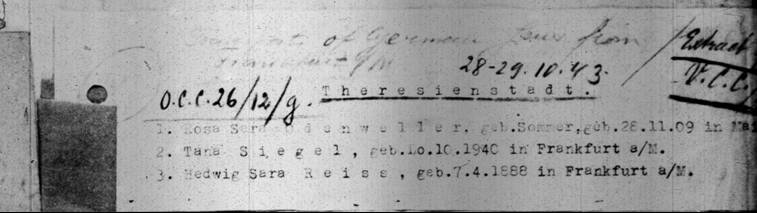 Transports of German Jews from
Frankfurt a/M
Extract
28-29.10.43.
V.C.C.
O.C.C.26/12/g. Theresienstadt.
1. Rosa Sara Odenweller, geb.Sommer, geb.28.11.09 in
2. Tana Siegel, geb.1o.10.1940 in Frankfurt a/M.
3. Hedwig Sara Reiss, geb.7.4.1888 in Frankfurt a/M.